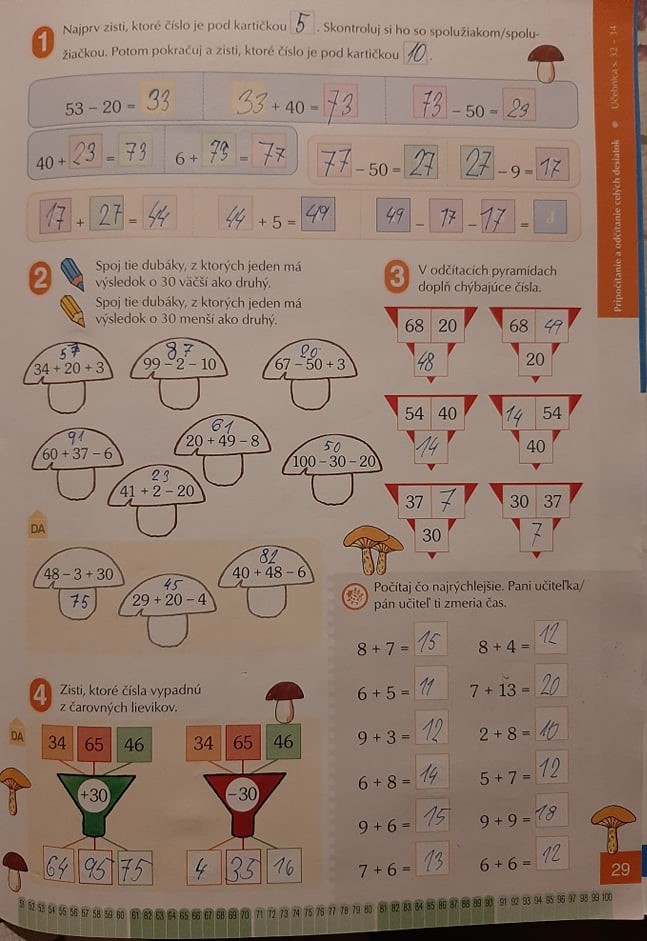 1 Najprv zisti, ktoré číslo je pod kartičkou 5 . Skontroluj si ho so spolužiakom/spolu-
žiačkou. Potom pokračuj a zisti, ktoré číslo je pod kartičkou 10 .
53 – 20 = 33 33 + 40 = 73 73 – 50 = 23
40 + 23 = 73 6 + 73 = 77 77 – 50 = 27 27 – 9 = 17
17 + 27 = 44 44 + 5 = 49 49 – 17 – 17 = J
Pripočítanie a odčítanie celých desiatok • Učebnica s. 32 – 34
2 Spoj tie dubáky, z ktorých jeden má
výsledok o 30 väčší ako druhý.
Spoj tie dubáky, z ktorých jeden má
výsledok o 30 menší ako druhý.
57 87 20
34 + 20 + 3 99 – 2 – 10 67 – 50 + 3
91 61 50
60 + 37 – 6 20 + 49 – 8 100 – 30 – 20
23
41 + 2 – 20
DA
48 – 3 + 30
75
45
29 + 20 – 4
82
40 + 48 – 6
3 V odčítacích pyramídach
doplň chýbajúce čísla.
68 20 68 49
48 20
54 40 14 54
14 40
37 7 30 37
30 7
4 Zisti, ktoré čísla vypadnú
z čarovných lievikov.
DA
34 65 46 34 65 46
+30 –30
64 95 75 4 35 16
Počítaj čo najrýchlejšie. Pani učiteľka/
pán učiteľ ti zmeria čas.
8 + 7 = 15 8 + 4 = 12
6 + 5 = 11 7 + 13 = 20
9 + 3 = 12 2 + 8 = 10
6 + 8 = 14 5 + 7 = 12
9 + 6 = 15 9 + 9 = 18
7 + 6 = 13 6 + 6 = 12
29
51 52 53 54 55 56 57 58 59 60 61 62 63 64 65 66 67 68 69 70 71 72 73 74 75 76 77 78 79 80 81 82 83 84 85 86 87 88 89 90 91 92 93 94 95 96 97 98 99 100